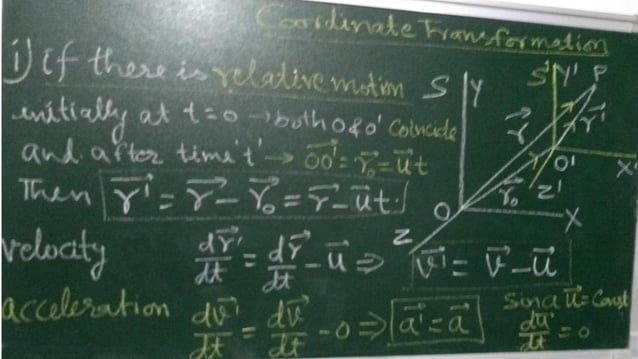 Coordinate Transformation
i) if there is relative motion
initially at t=0 → both O & O' Coincide
and after time 't' → OO⃗' = r⃗₀ = u⃗t
Then r⃗' = r⃗ - r⃗₀ = r⃗ - u⃗t.
velocity dr⃗'/dt = dr⃗/dt - u⃗ ⇒ v⃗' = v⃗ - u⃗
acceleration dv⃗'/dt = dv⃗/dt - 0 ⇒ a⃗' = a⃗
Since u⃗ = Const
du⃗/dt = 0
S Y S' Y' P
r⃗ r⃗'
O' X'
r⃗₀ Z'
O X
Z